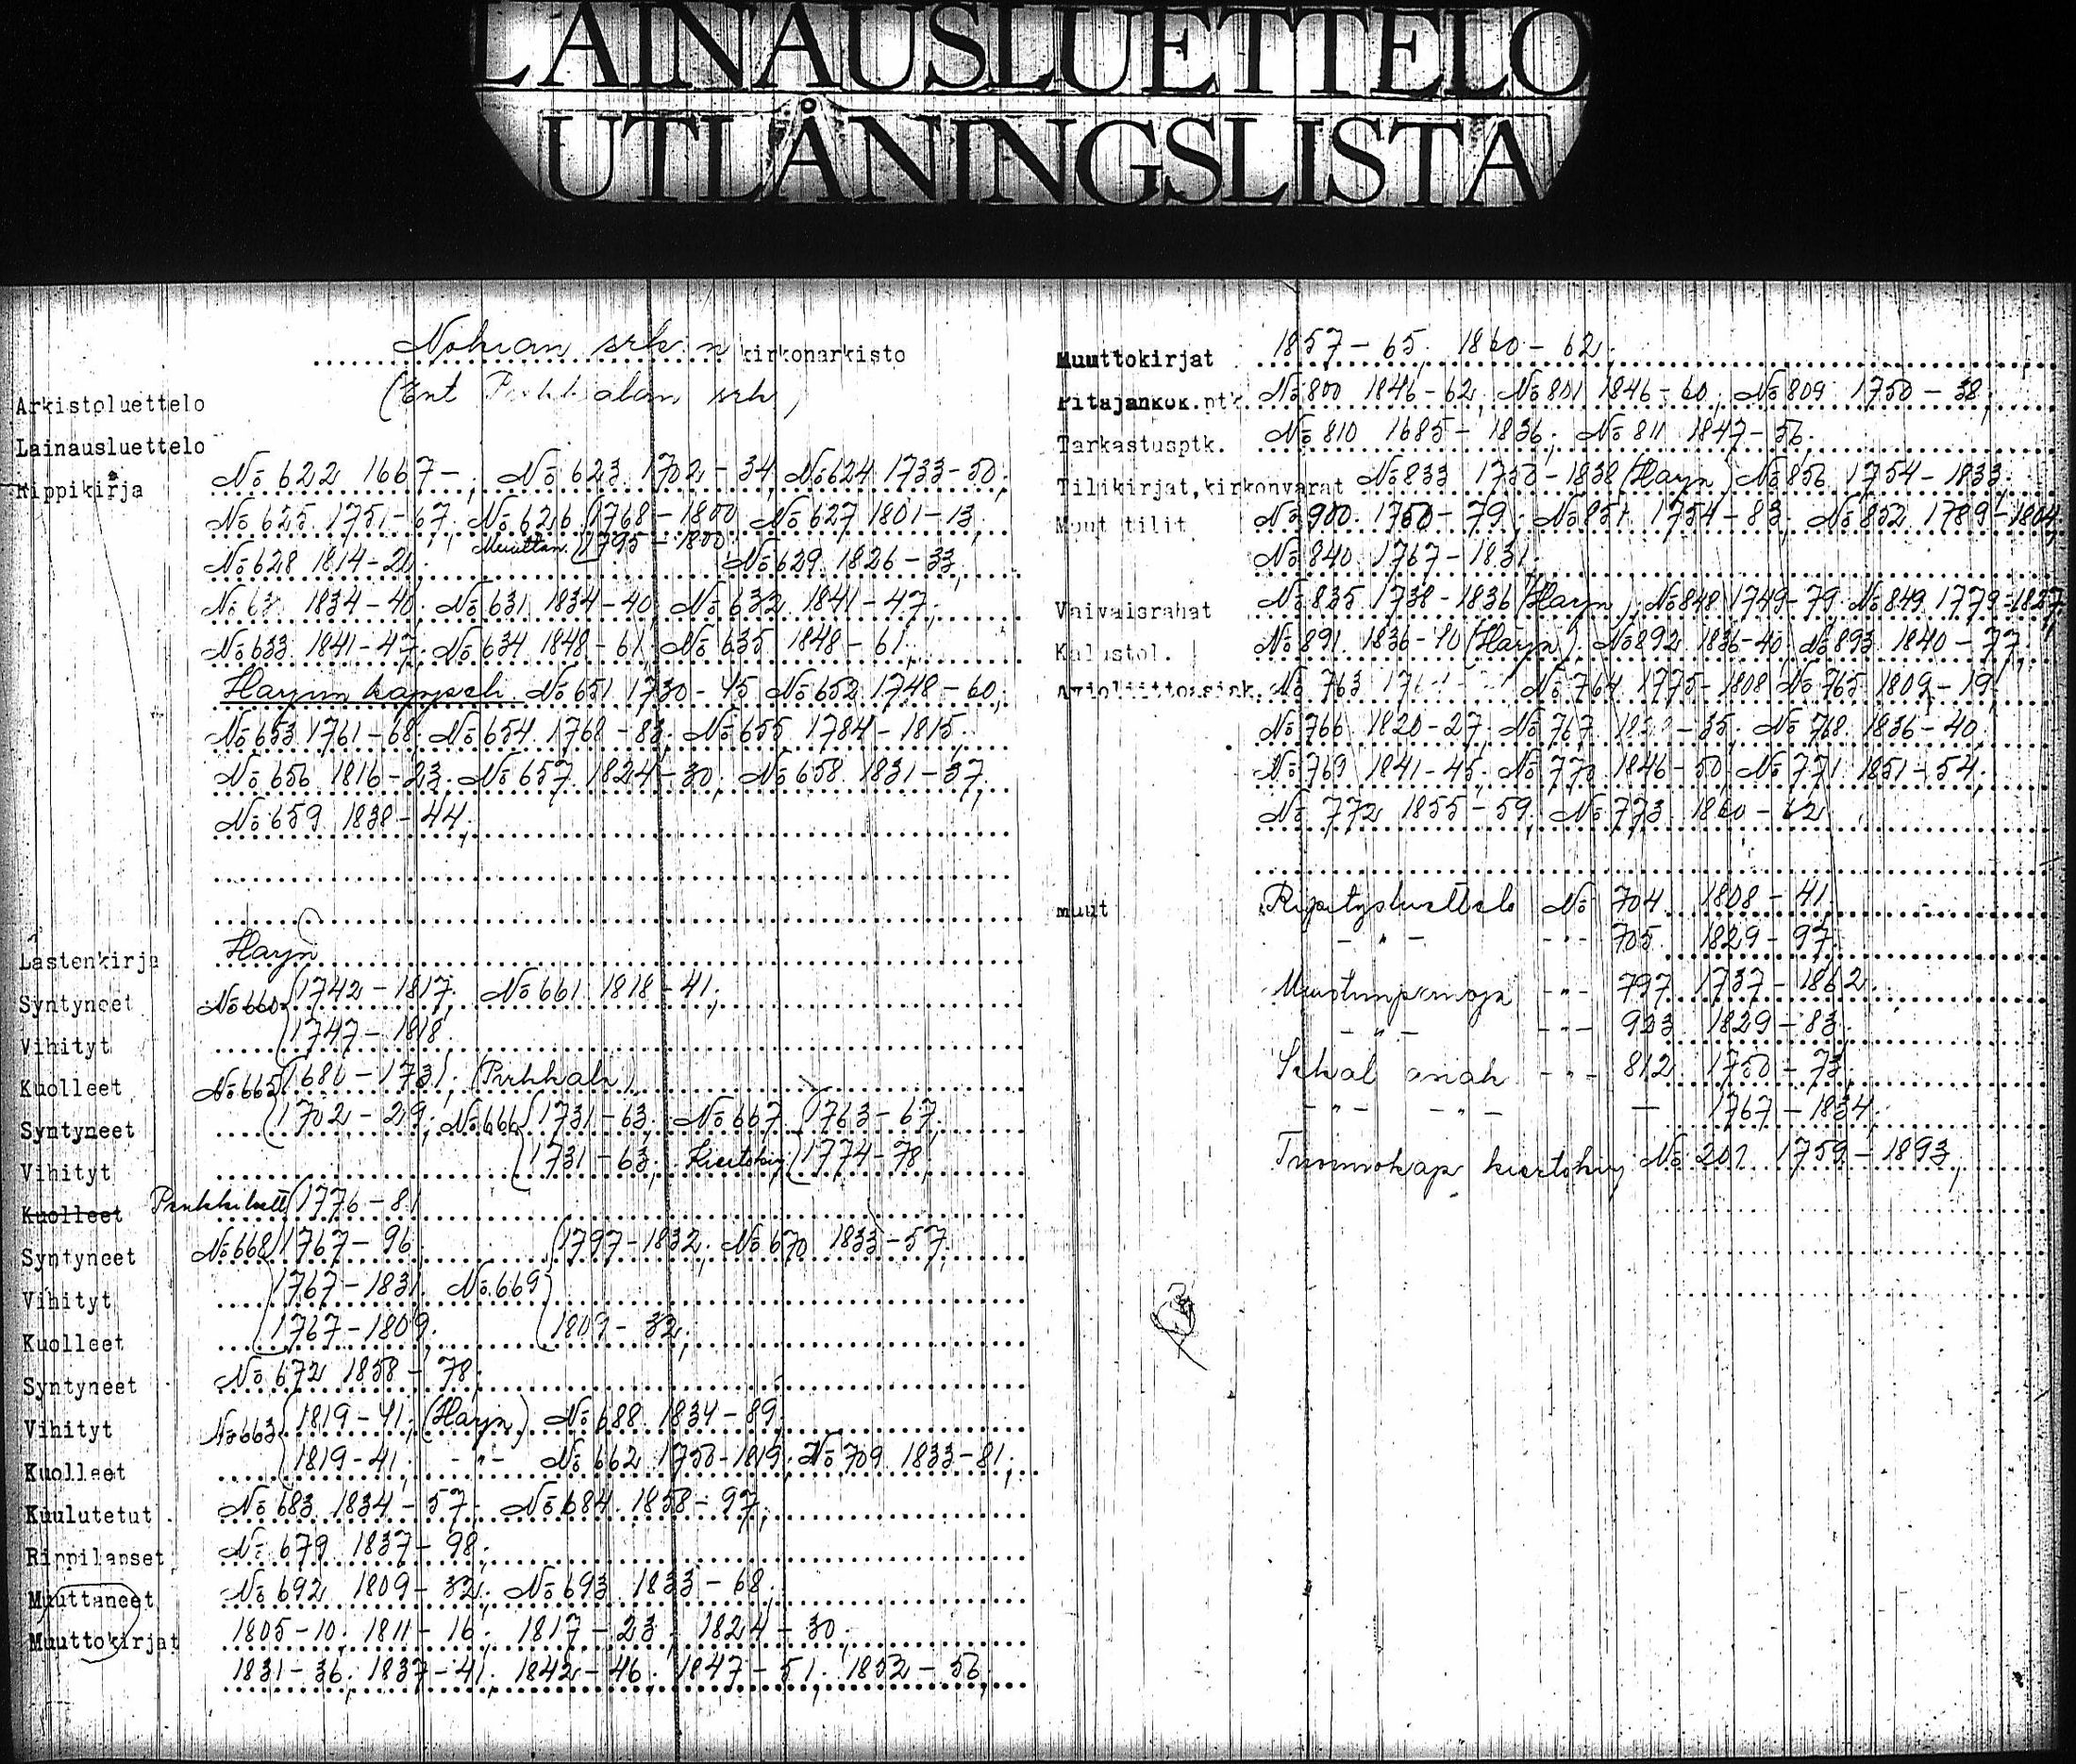 LAINAUSLUETTELO
UTLÅNINGSLISTA
Nokian srk:n kirkonarkisto
Arkistoluettelo (Ent Pirkkalan srk)
Lainausluettelo
Rippikirja No 622 1667-; No 623 1702-34; No 624 1733-50;
No 625 1751-67; No 626 (1768-1800 No 627 1801-13;
Muuttan. (1795-1800;
No 628 1814-20; No 629 1826-33;
1834-40; No 631 1834-40; No 632 1841-47;
No 633 1841-47; No 634 1848-61; No 635 1848-61;
Harjun kappeli No 651 1730-45 No 652 1748-60;
No 653 1761-68; No 654 1768-83; No 655 1784-1815;
No 656 1816-23; No 657 1824-30; No 658 1831-37;
No 659 1838-44;
Lastenkirja Harju
Syntyneet No 660 (1742-1817; No 661 1818-41;
Vihityt (1747-1818
Kuolleet No 665 (1686-1731; (Pirkkala)
Syntyneet (1702-29; No 666 (1731-63; No 667 (1763-67;
Vihityt (1731-63; Kiertokirj (1774-78;
Kuolleet (1776-81
Syntyneet No 668 (1767-96 (1797-1832; No 670 1833-57;
Vihityt (1767-1831; No 669
Kuolleet (1767-1809; (1809-32;
Syntyneet No 672 1858-78;
Vihityt No 663 (1819-41; (Harju) No 688 1834-89;
Kuolleet (1819-41; -"- No 662 1750-1819; No 709 1833-81;
Kuulutetut No 683 1834-57; No 684 1858-97;
Rippilapset No 679 1837-98;
Muuttaneet No 692 1809-32; No 693 1833-68;
Muuttokirjat 1805-10; 1811-16; 1817-23; 1824-30;
1831-36; 1837-41; 1842-46; 1847-51; 1852-56;
Muuttokirjat 1857-65; 1860-62;
Pitäjänkok.ptk. No 800 1846-62; No 801 1846-60; No 809 1750-38;
Tarkastusptk. No 810 1685-1836; No 811 1847-56;
Tilikirjat, kirkonvarat No 833 1750-1838 (Harju) No 856 1754-1833;
Muut tilit No 900 1760-79; No 851 1754-83; No 852 1789-1804;
No 840 1767-1831;
Vaivaisrahat No 835 1738-1836 (Harju); No 848 1749-79; No 849 1779-1827;
Kalustol. No 891 1836-40 (Harju); No 892 1836-40; No 893 1840-77;
Avioliittoasiak. No 763 No 764 1775-1808 No 765 1809-19;
No 766 1820-27; No 767 -35; No 768 1836-40;
No 769 1841-45; No 770 1846-50; No 771 1851-54;
No 772 1855-59; No 773 1860-62
muut Ripitysluettelo No 704 1808-41;
-"- -"- 705 1829-97;
-"- 797 1737-1862;
-"- -"- 923 1829-83;
Sekal asiak -"- 812 1750-73;
-"- -"- — 1767-1834;
Tuomiokap kiertokirj No 201 1759-1893;